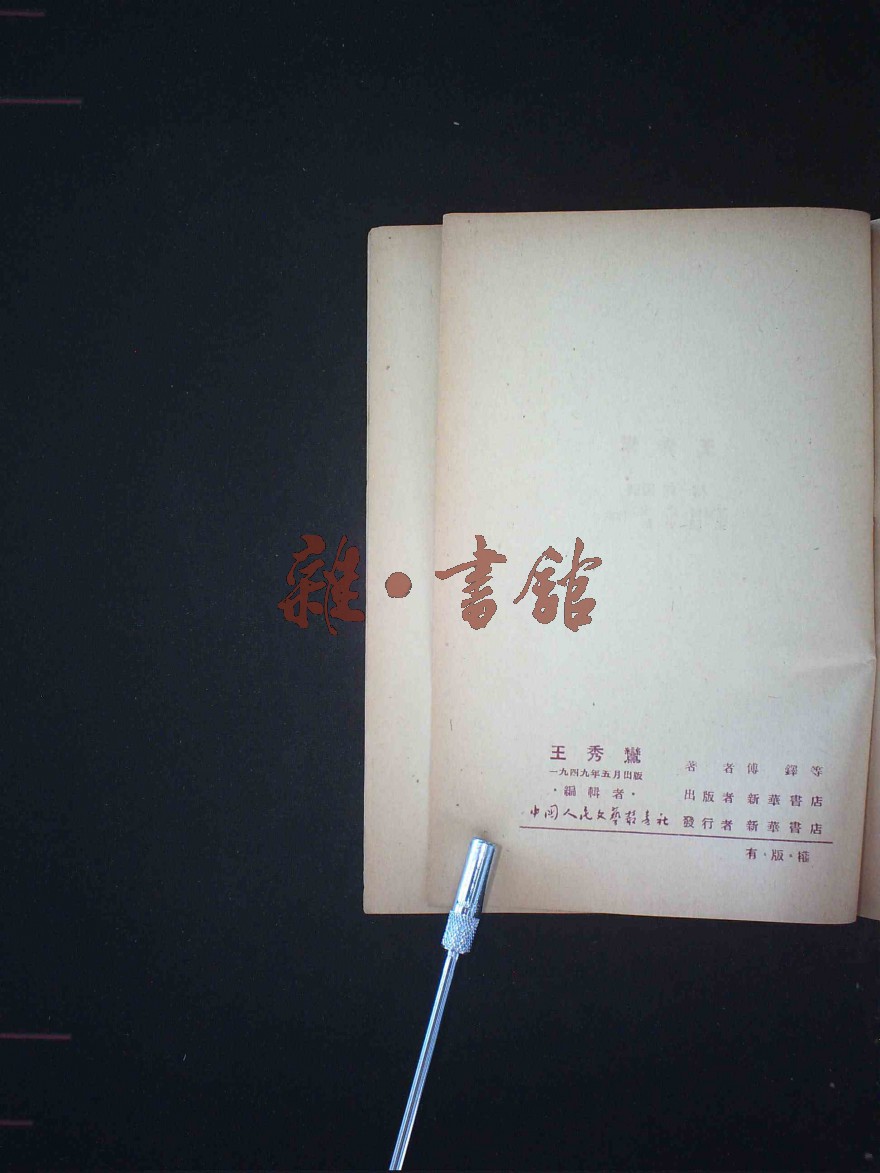 雜·書館
王秀鸞
一九四九年五月出版
·編輯者·
中國人民文藝叢書社
著者傅鐸等
出版者新華書店
發行者新華書店
有·版·權